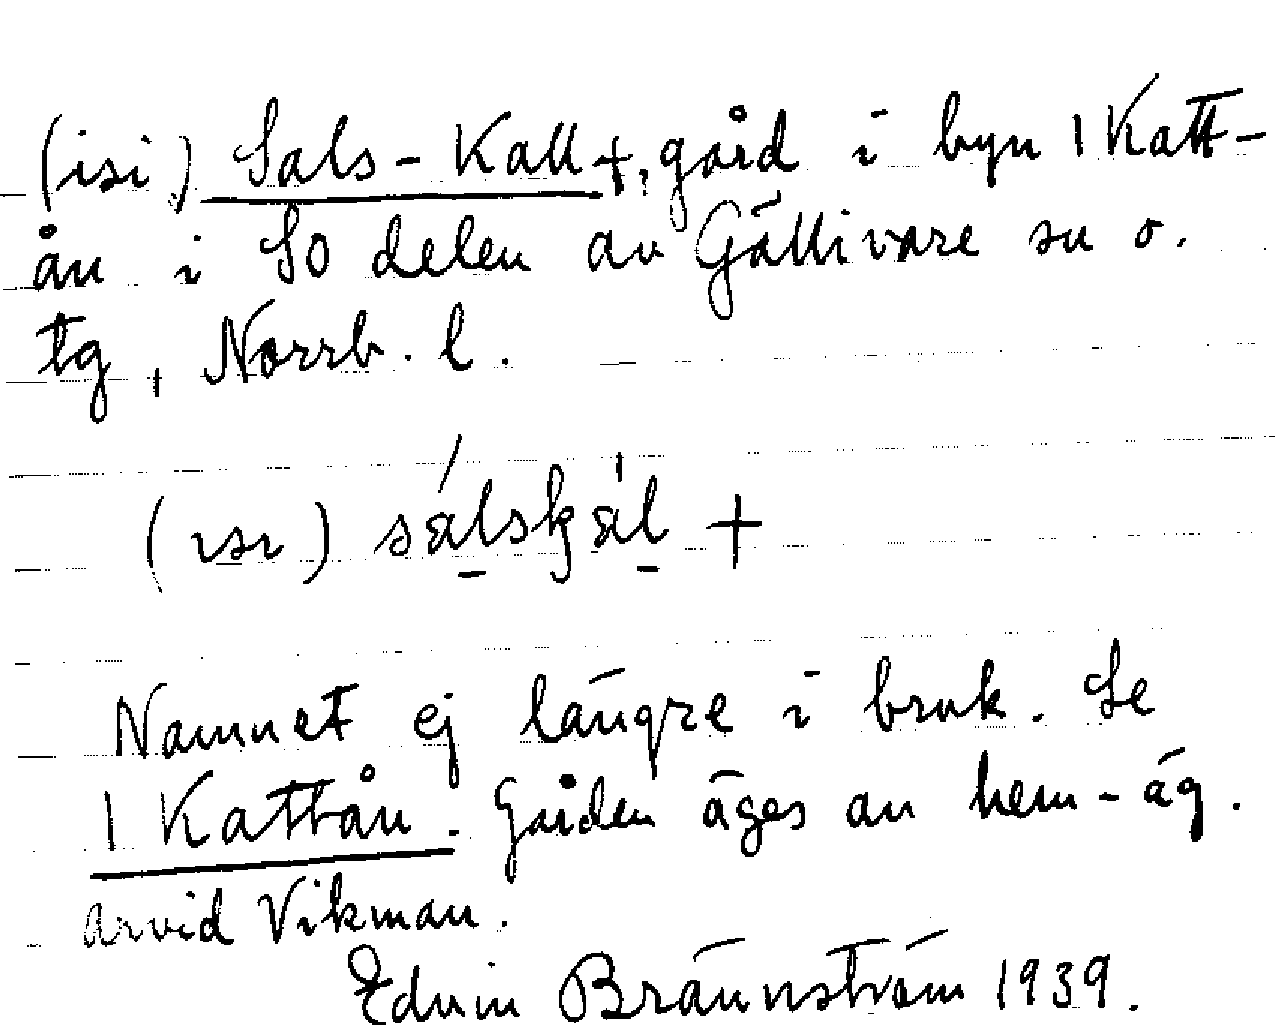 (isi) Sals-Kall +, gård i byn 1 Katt-
ån i SO delen av Gällivare sn o.
tg, Norrb. l.
(ısı) sálskál +
Namnet ej längre i bruk. Se
1 Kattån. Gården äges av hem-äg.
Arvid Vikman.
Edvin Brännström 1939.